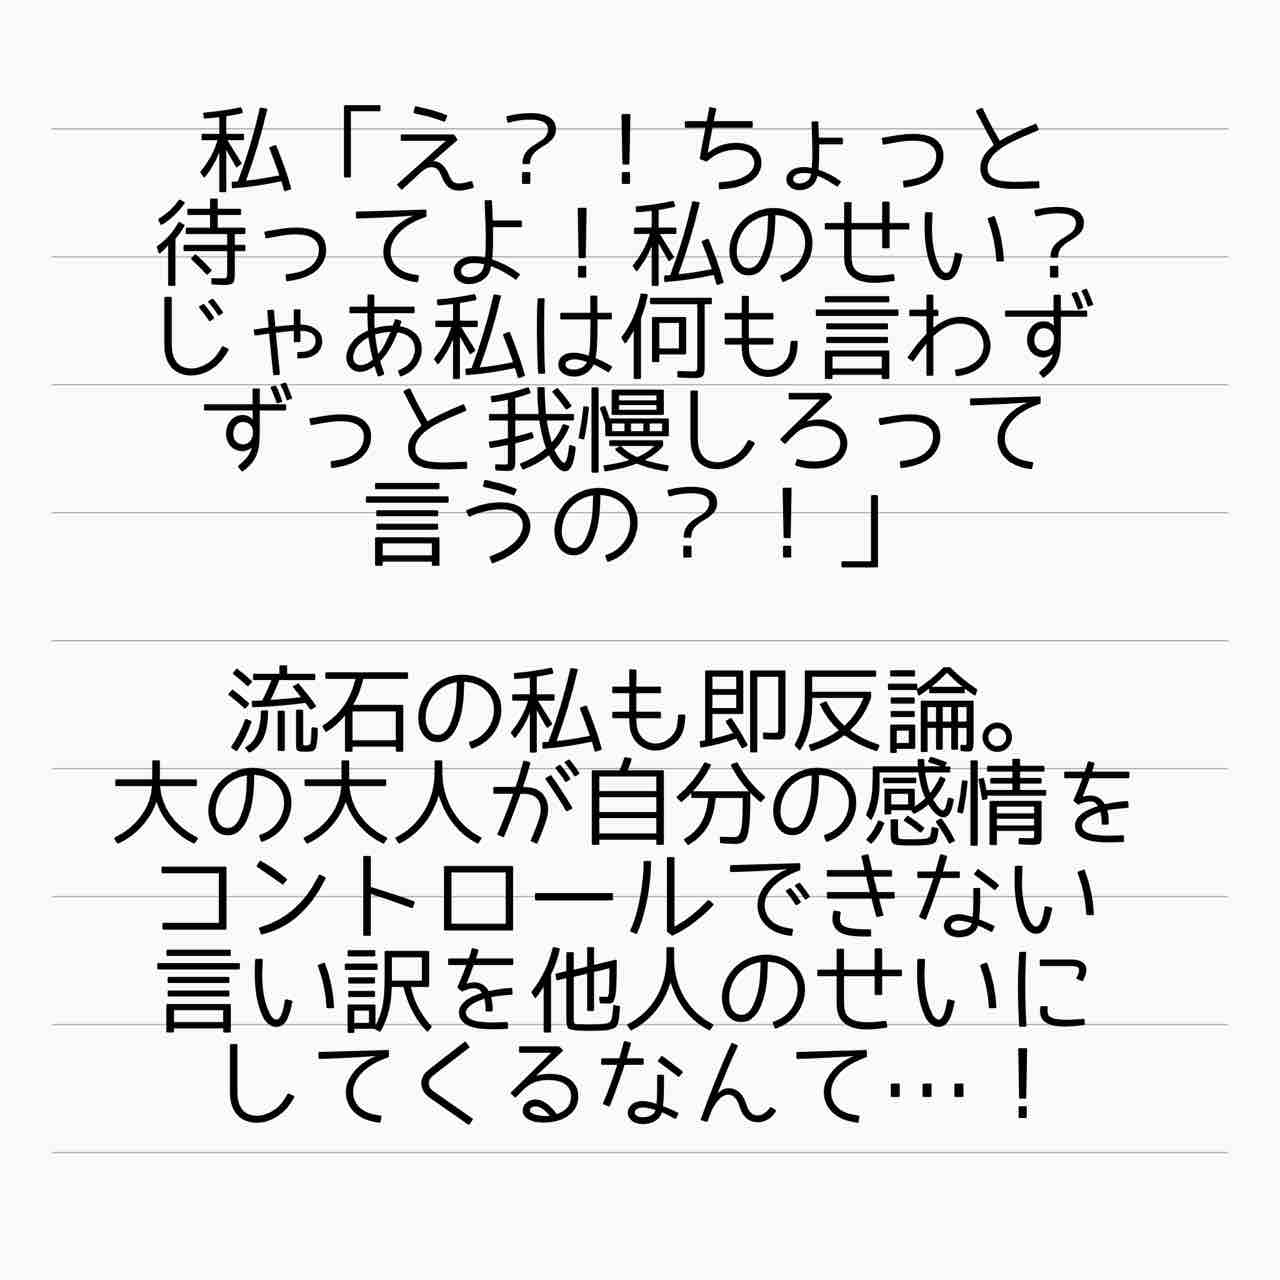 私「え？！ちょっと
待ってよ！私のせい？
じゃあ私は何も言わず
ずっと我慢しろって
言うの？！」
流石の私も即反論。
大の大人が自分の感情を
コントロールできない
言い訳を他人のせいに
してくるなんて…！